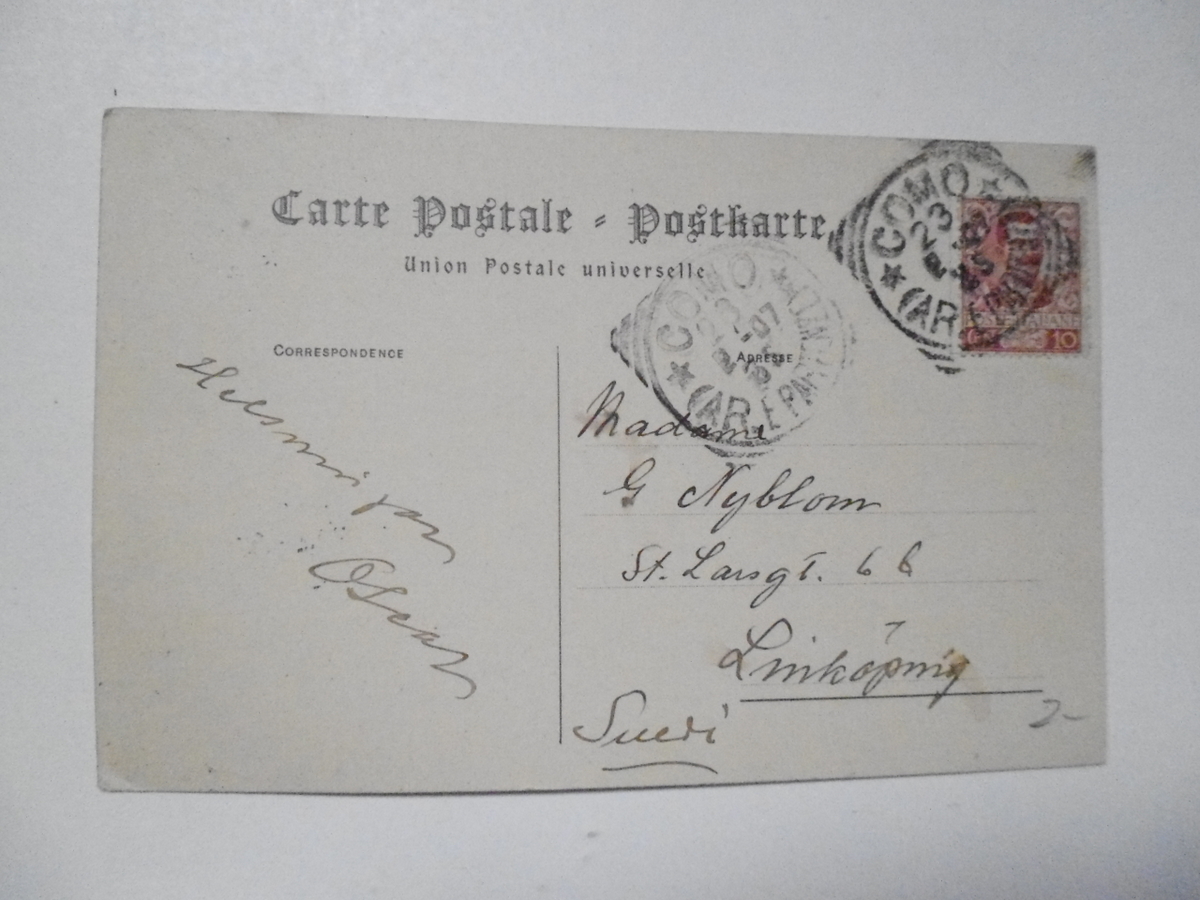 Carte Postale - Postkarte
Union Postale universelle
CORRESPONDENCE
ADRESSE
COMO
23
(AR
COMO
23
07
(AR. E PAR
10
Helsningar
Oscar
Madame
G Nyblom
St. Larsgt. 6 6
Linköping
Suedi
2-